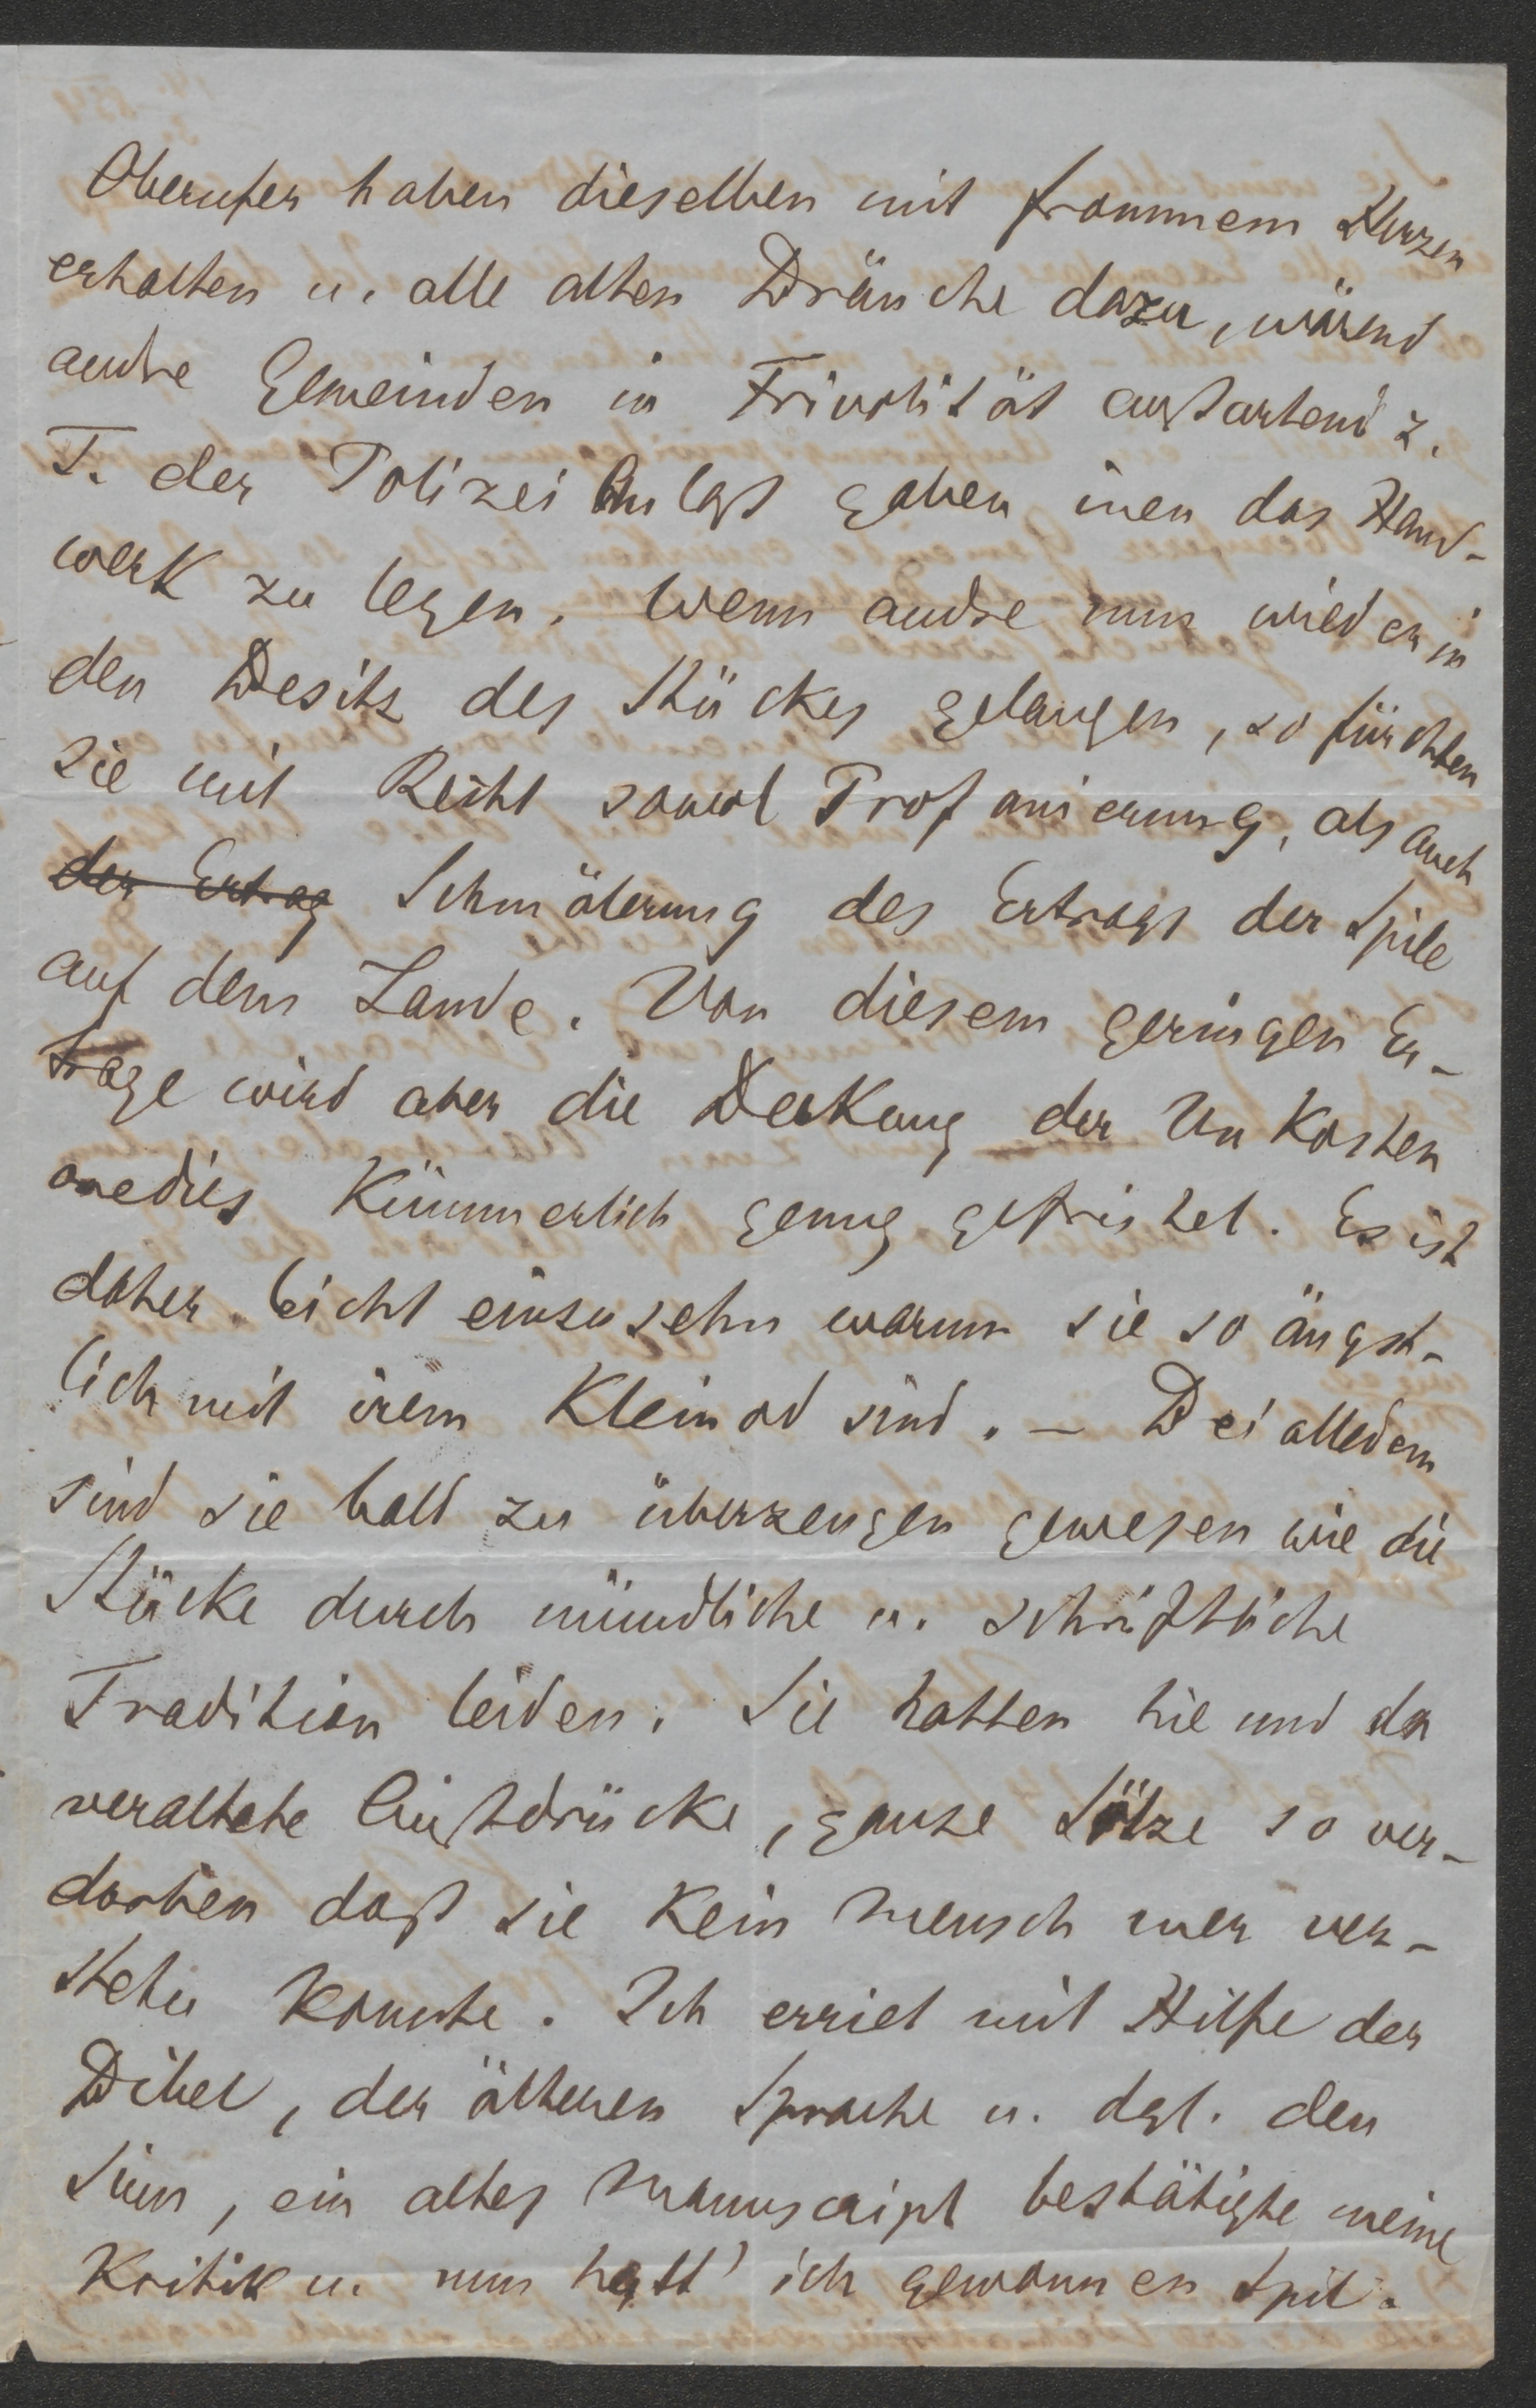 Oberufer haben dieselben mit frommem Herzen
erhalten u. alle alten Bräuche dazu, wärend
andre Gemeinden in Frivolität außartend z.
T. der Polizei Anlaß gaben inen das Hand-
werk zu legen. Wenn andre nun wieder in
den Besitz des Stückes gelangen, so fürchten
sie mit Recht sowol Profanierung, als auch
der Ertrag Schmälerung des Ertrags der Spile
auf dem Lande. Von diesem geringen Er-
trage wird aber die Deckung der Unkosten
onedies kümmerlich genug gefristet. Es ist
daher leicht einzusehn warum sie so ängst-
lich mit irem Kleinod sind. – Bei alledem
sind sie bald zu überzeugen gewesen wie die
Stücke durch mündliche u. schriftliche
Tradition leiden. Sie hatten hie und da
veraltete Außdrücke, ganze Sätze so ver-
dorben daß sie kein Mensch mer ver-
stehn konnte. Ich erriet mit Hilfe der
Bibel, der älteren Sprache u. dgl. den
Sinn, ein altes Manuscript bestätigte meine
Kritik u. nun hatt' ich gewonnen Spil.